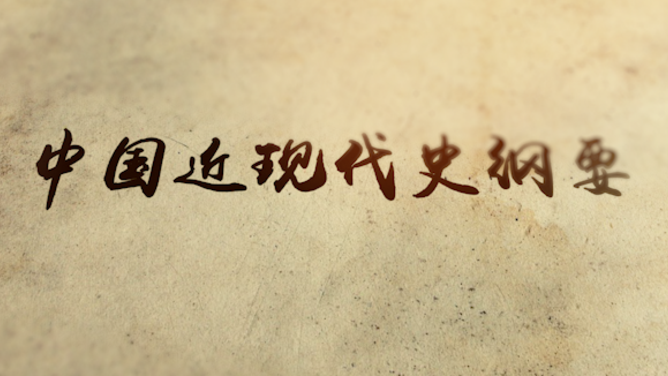 中国近现代史纲要